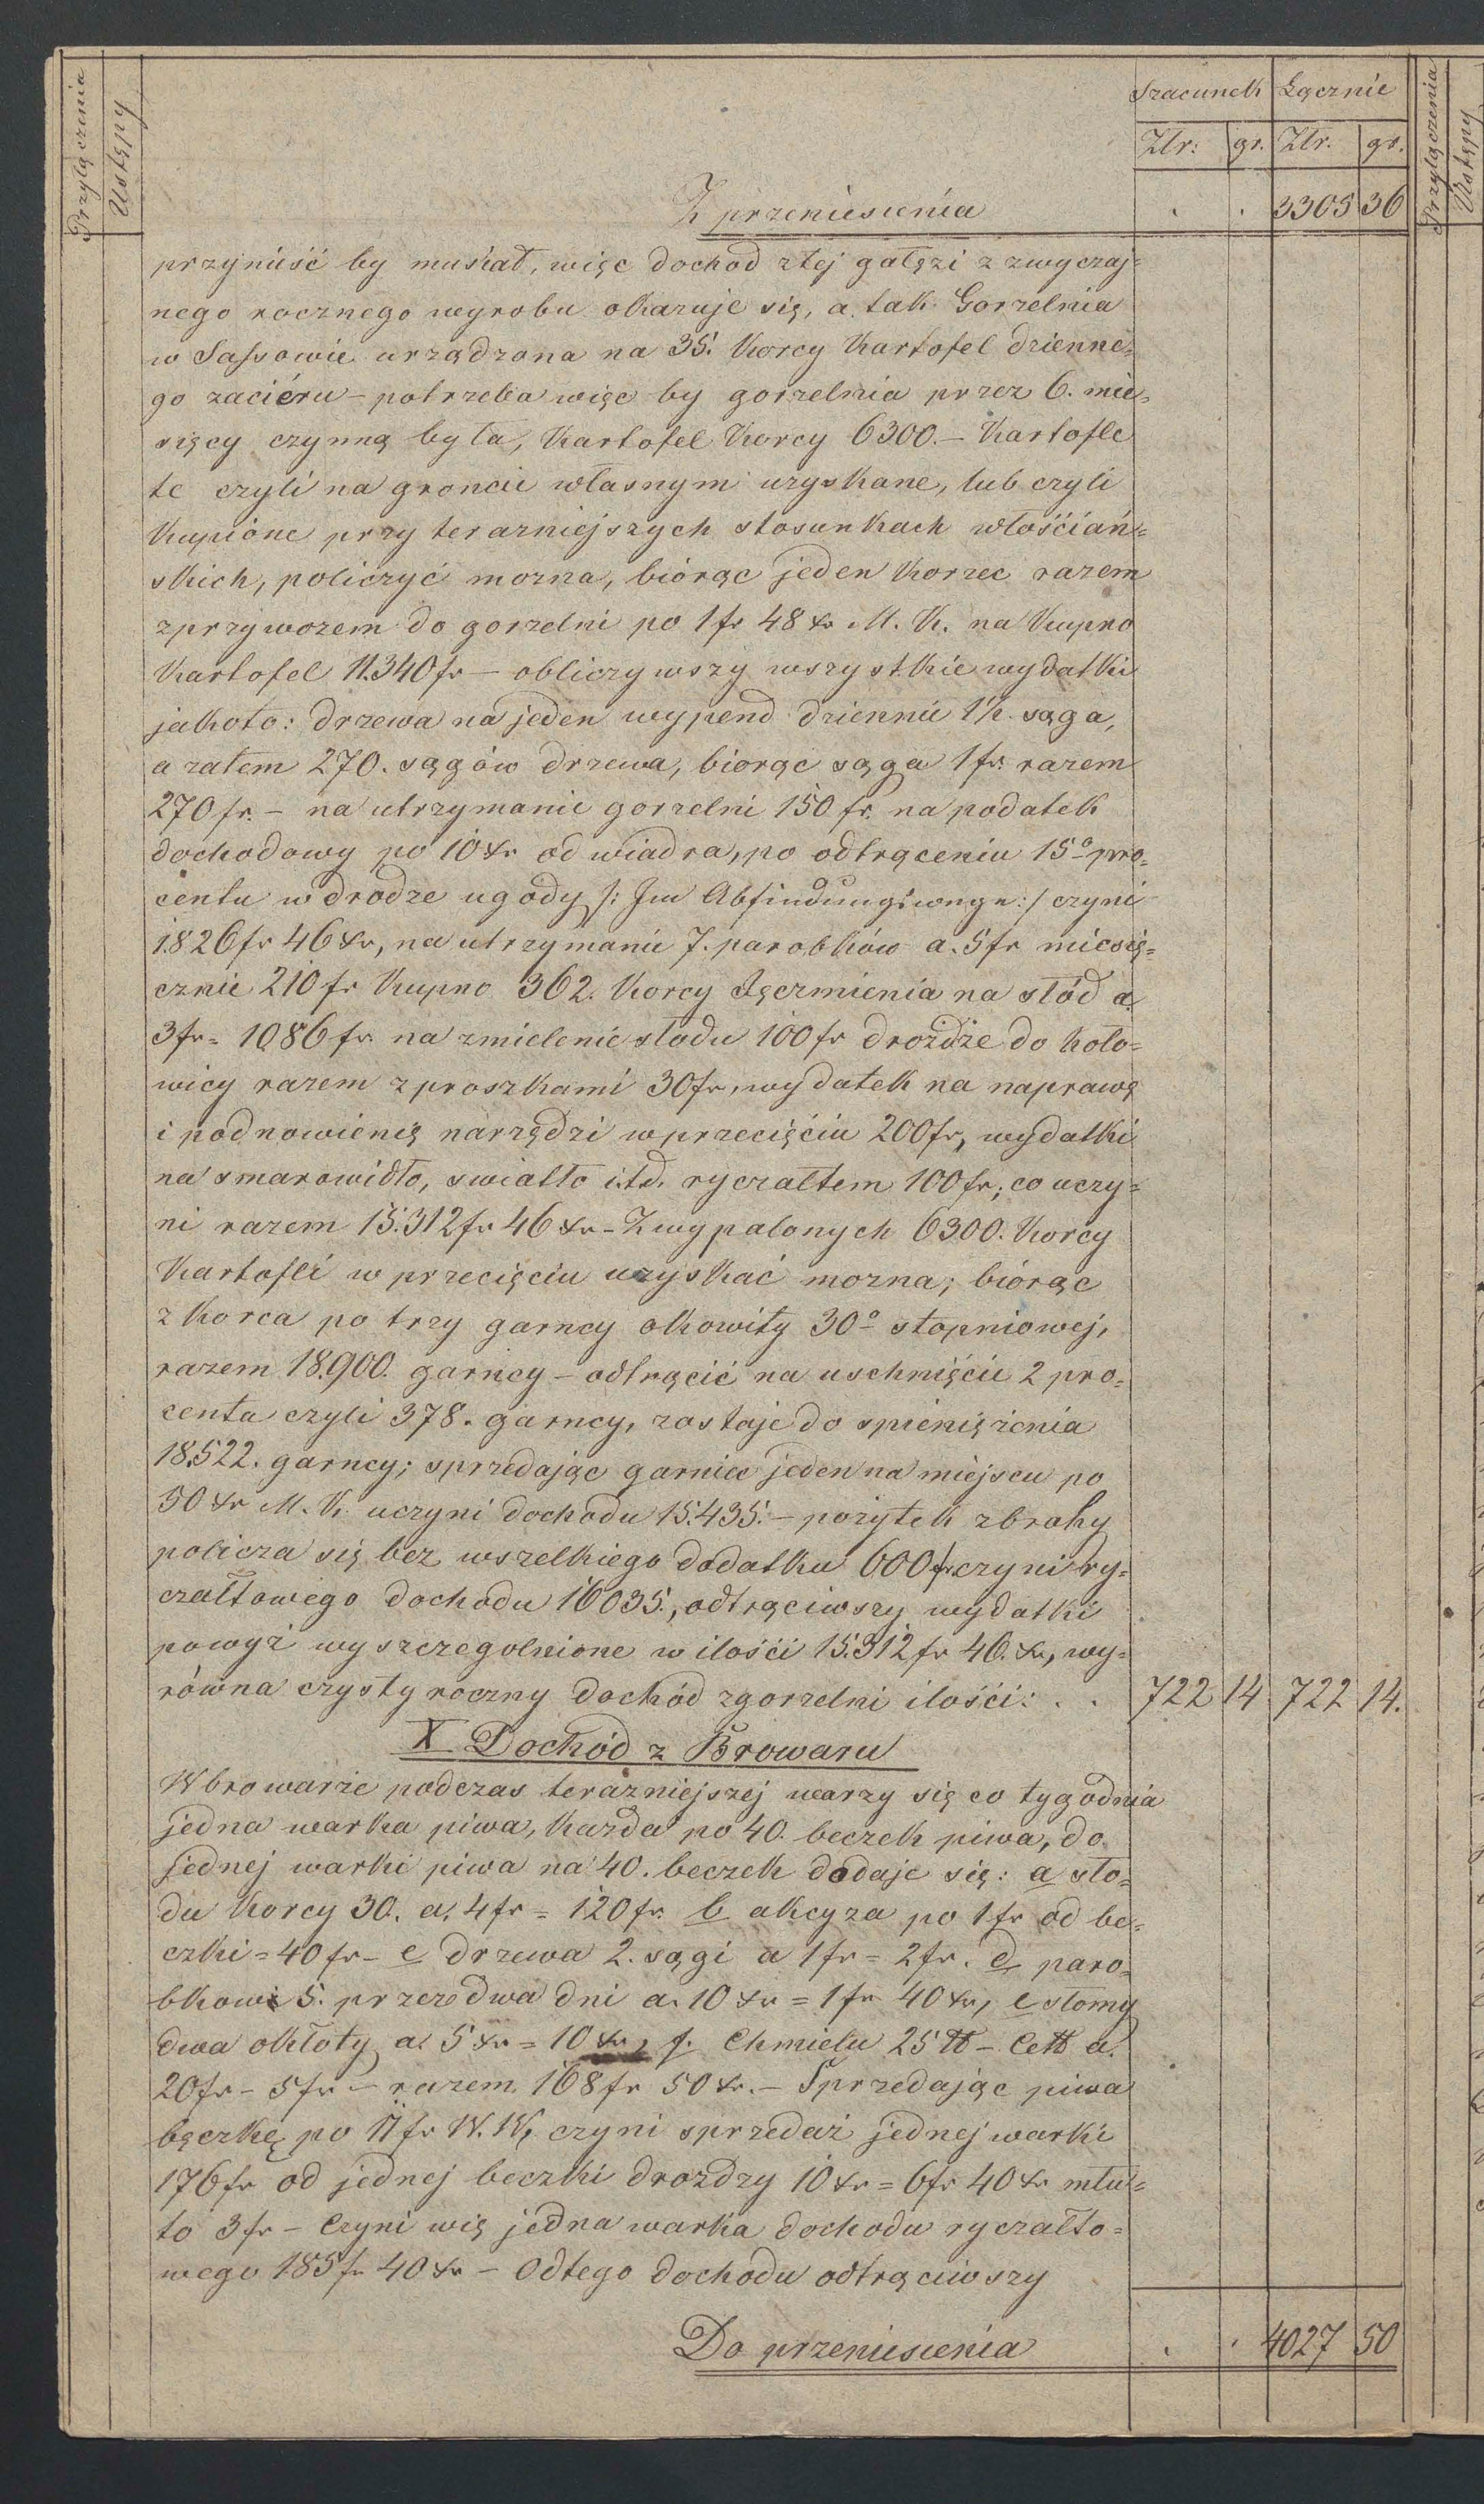 Przyłączenia
Ustępy
Szacunek
Łącznie
Złr:
gr.
Złr.
gr.
Przyłączenia
Ustępy
Z przeniesienia . . 3305 36
przynieść by musiał, więc dochod ztej gałęzi z zwyczaj=
nego rocznego wyrobu okazuje się, a tak Gorzelnia
w Sassowie urządzona na 35. Korcy Kartofel dzienne=
go zaciéru – potrzeba więc by gorzelnia przez 6. mie=
sięcy czynną była, Kartofel Korcy 6300. – Kartofle
te czyli na groncie własnym uzyskane, lub czyli
Kupione przy terazniejszych stosunkach włościań=
skich, policzyć mozna, biórąc jeden Korzec razem
zprzywozem do gorzelni po 1 fr 48 xr M. K. na Kupno
Kartofel 11.340 fr – obliczywszy wszystkie wydatki
jakoto: drzewa na jeden wypend dziennie 1½ sąga,
a zatem 270. sągów drzewa, biorąc sąga 1 fr. razem
270 fr. – na utrzymanie gorzelni 150 fr. na podatek
dochodowy po 10 xr od wiadra, po odtrąceniu 15º pro=
centu w drodze ugody /: Im Abfindungswege :/ czyni
1.826 fr 46 xr, na utrzymanie 7. parobków a. 5 fr miesię=
cznie 210 fr Kupno 362. Korcy Jęczmienia na słód a.
3 fr = 1086 fr. na zmielenie słodu 100 fr drożdże do hoło=
wicy razem z proszkami 30 fr, wydatek na naprawę
i podnowienię narzędzi w przecięciu 200 fr, wydatki
na smarowidło, swiatło i.t.d. ryczałtem 100 fr; co uczy=
ni razem 15.312 fr 46 xr – Z wypalonych 6300. Korcy
Kartofli w przecięciu uzyskać mozna; biórąc
z Korca po trzy garncy okowity 30º stopniowej,
razem 18.900. garncy – odtrącić na uschnięcie 2 pro=
centa czyli 378. garncy, zostaje do spieniężenia
18.522. garncy; sprzedając garniec jeden na miejscu po
50 xr M. K. uczyni dochodu 15.435. – pożytek zbrahy
policza się bez wszelkiego dodatku 600 fr czyni ry=
czałtowego dochodu 16035., odtrąciwszy wydatki
powyż wyszczegolnione w ilości 15.312 fr 46. xr, wy=
równa czysty roczny dochód zgorzelni ilości: . . 722 14 722 14.
X Dochód z Browaru
W browarze podczas terazniejszej warzy się co tygodnia
jedna warka piwa, każda po 40. beczek piwa, do
jednej warki piwa na 40. beczek dodaje się: a sło=
du Korcy 30. a. 4 fr = 120 fr. b akcyza po 1 fr od be=
czki = 40 fr – c drzewa 2. sągi a 1 fr = 2 fr. d paro=
bkow 5. przez dwa dni a. 10 xr = 1 fr 40 xr, e słomy
dwa okłoty a 5 xr = 10 xr, f. Chmielu 25 ℔ – Cet℔ a.
20 fr – 5 fr – razem 168 fr 50 xr. – Sprzedając piwa
bęczkę po 11 fr W. W. czyni sprzedaż jednej warki
176 fr od jednej beczki drożdzy 10 xr = 6 fr 40 xr młu=
to 3 fr – Czyni wię jedna warka dochodu ryczałto=
wego 185 fr 40 xr – Odtego dochodu odtrąciwszy
Do przeniesienia . . 4027 50